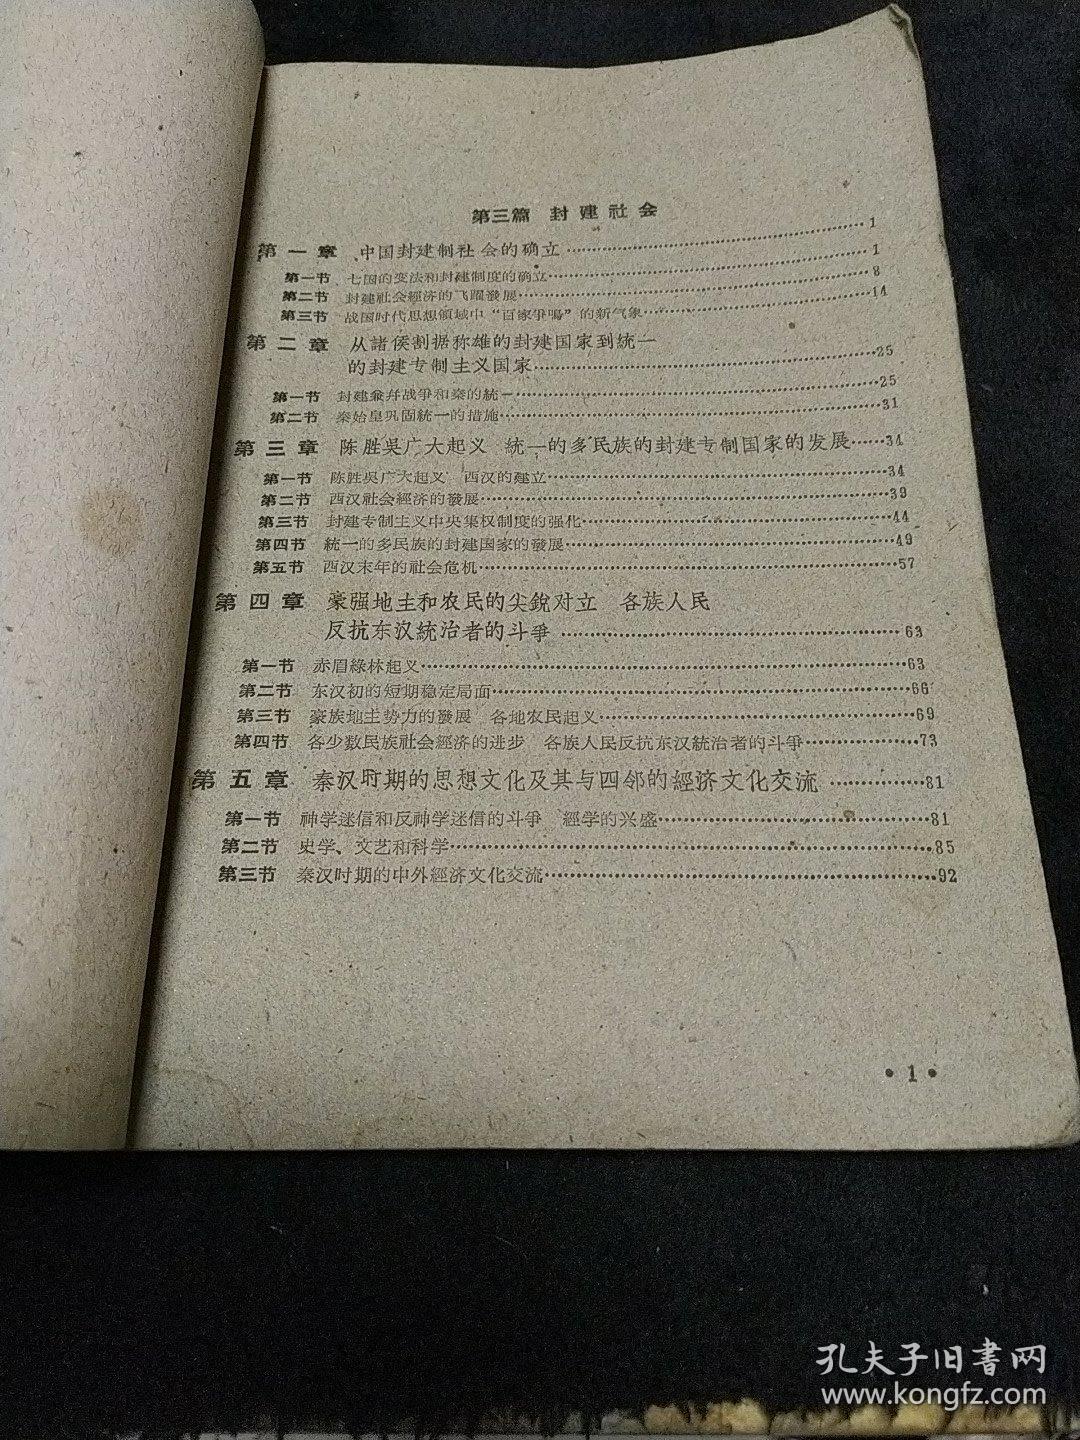 第三篇 封建社会
第一章 中国封建制社会的确立……1
第一节 七国的变法和封建制度的确立……1
第二节 封建社会經济的飞躍發展……8
第三节 战国时代思想领域中“百家爭鳴”的新气象……14
第二章 从諸侯割据称雄的封建国家到統一
的封建专制主义国家……25
第一节 封建兼并战爭和秦的統一……25
第二节 秦始皇巩固統一的措施……31
第三章 陈胜吳广大起义 統一的多民族的封建专制国家的发展……34
第一节 陈胜吳广大起义 西汉的建立……34
第二节 西汉社会經济的發展……39
第三节 封建专制主义中央集权制度的强化……44
第四节 統一的多民族的封建国家的發展……49
第五节 西汉末年的社会危机……57
第四章 豪强地主和农民的尖銳对立 各族人民
反抗东汉統治者的斗爭……63
第一节 赤眉綠林起义……63
第二节 东汉初的短期稳定局面……66
第三节 豪族地主势力的發展 各地农民起义……69
第四节 各少数民族社会經济的进步 各族人民反抗东汉統治者的斗爭……73
第五章 秦汉时期的思想文化及其与四邻的經济文化交流……81
第一节 神学迷信和反神学迷信的斗爭 經学的兴盛……81
第二节 史学、文艺和科学……85
第三节 秦汉时期的中外經济文化交流……92
• 1 •
孔夫子旧書网
www.kongfz.com